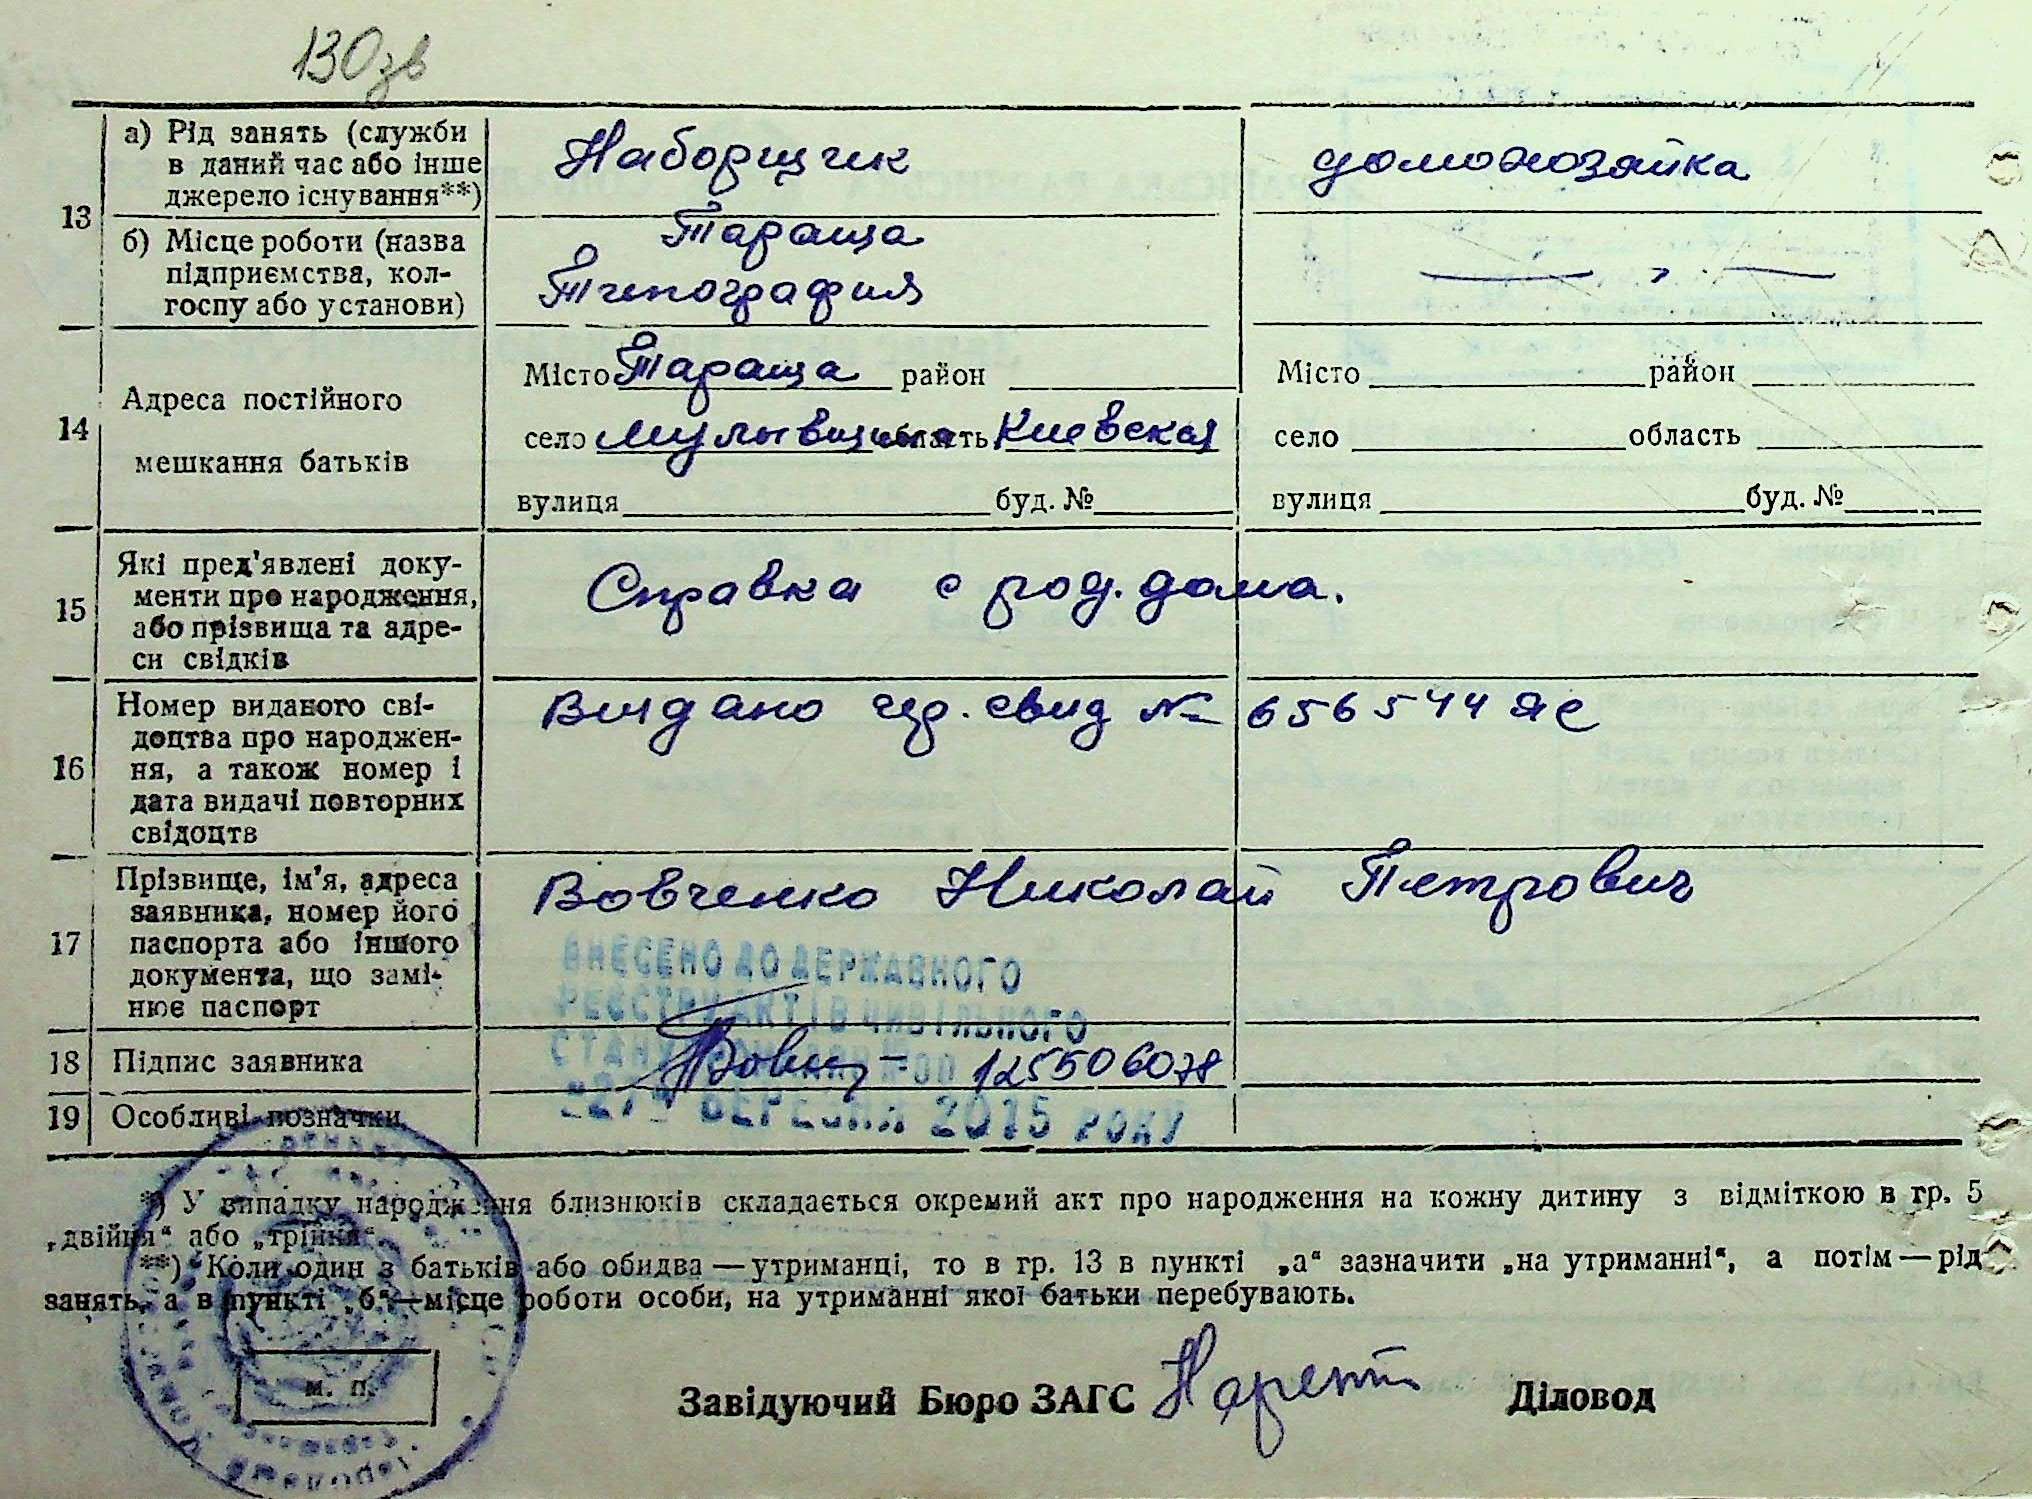 130зв
13
а) Рід занять (служби
в даний час або інше
джерело існування**)
Наборщчик
домохозяйка
б) Місце роботи (назва
підприємства, кол-
госпу або установи)
Тараща
Типография
14
Адреса постійного
мешкання батьків
Місто Тараща район
село область Киевская
вулиця буд. №
Місто район
село область
вулиця буд. №
15
Які пред'явлені доку-
менти про народження,
або прізвища та адре-
си свідків
Справка с род. дома.
16
Номер виданого сві-
доцтва про народжен-
ня, а також номер і
дата видачі повторних
свідоцтв
Видано свид № 656544 ЯС
17
Прізвище, ім'я, адреса
заявника, номер його
паспорта або іншого
документа, що замі-
нює паспорт
Вовченко Николай Петрович
ВНЕСЕНО ДО ДЕРЖАВНОГО
РЕЄСТРУ АКТІВ ЦИВІЛЬНОГО
СТАНУ
18 Підпис заявника
125506078
БЕРЕЗНЯ 2015 РОКУ
19 Особливі позначки
*) У випадку народження близнюків складається окремий акт про народження на кожну дитину з відміткою в гр. 5
„двійня“ або „трійня“.
**) Коли один з батьків або обидва — утриманці, то в гр. 13 в пункті „а“ зазначити „на утриманні“, а потім — рід
занять, а в пункті „б“ — місце роботи особи, на утриманні якої батьки перебувають.
м. п.
Завідуючий Бюро ЗАГС
Діловод